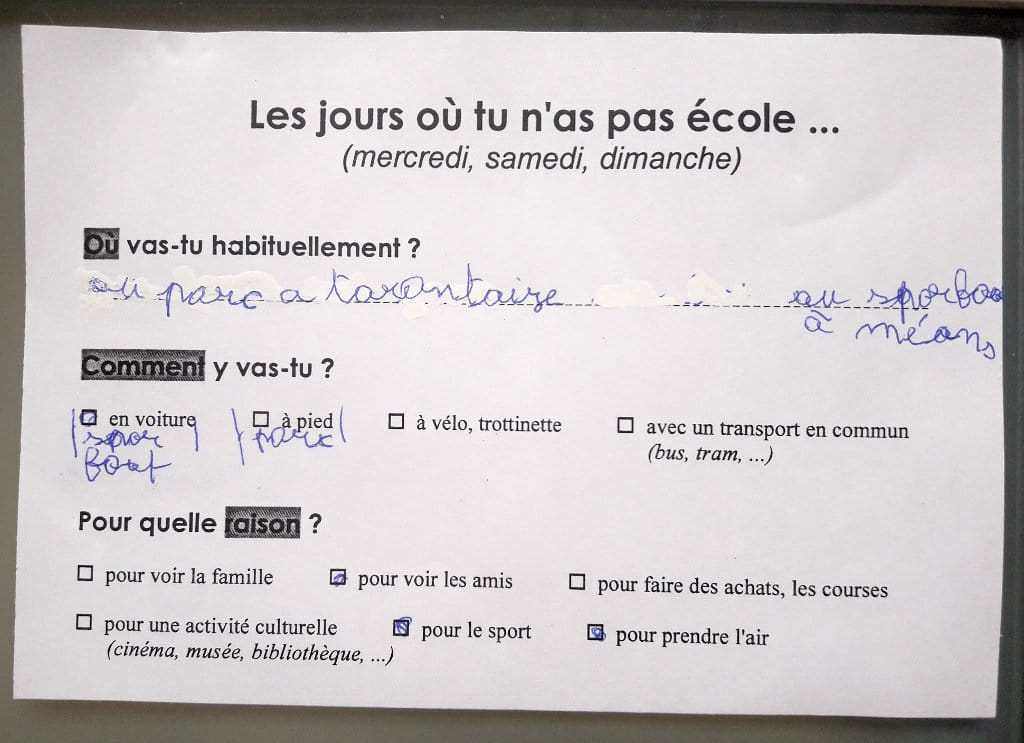 Les jours où tu n'as pas école ...
(mercredi, samedi, dimanche)
Où vas-tu habituellement ?
au parc a tarantaize au sporboo
à méons
Comment y vas-tu ?
en voiture à pied à vélo, trottinette avec un transport en commun
spor parc (bus, tram, ...)
Pour quelle raison ?
pour voir la famille pour voir les amis pour faire des achats, les courses
pour une activité culturelle pour le sport pour prendre l'air
(cinéma, musée, bibliothèque, ...)